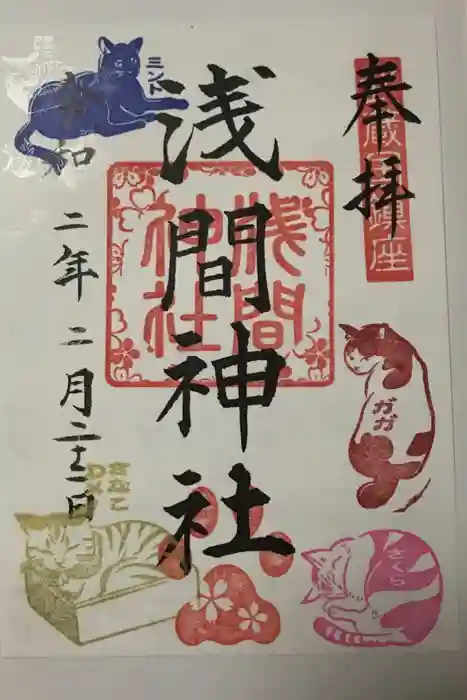 奉拝
武蔵国鎮座
浅間神社
浅間
神社
令和二年二月二十二日
ミント
ガガ
さくら
きなこ